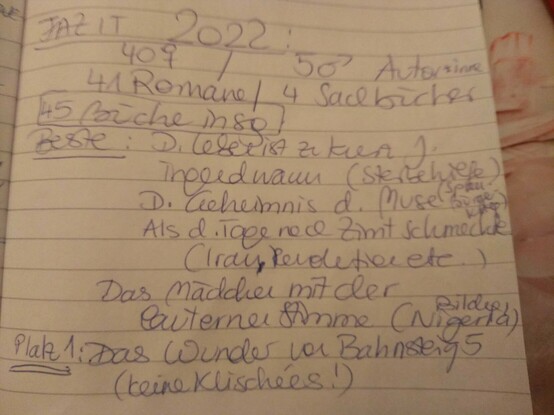 FAZIT 2022:
40♀ / 5♂ Autorinne
41 Romane / 4 Sachbücher
45 Bücher insg.
Beste: D. Leben ist zu kurz f.
irgendwann (Sterbehilfe)
D. Geheimnis d. Muse
Als d. Tage nach Zimt schmeckte
(Iran, Revolution etc.)
Das Mädchen mit der
lauternen Stimme (Nigeria)
Bildung
Platz 1: Das Wunder von Bahnsteig 5
(keine Klischées!)